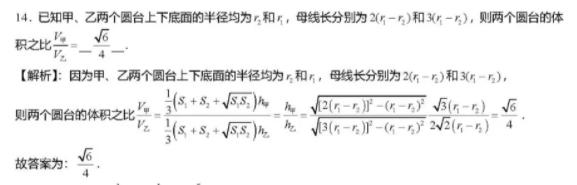 14. 已知甲、乙两个圆台上下底面的半径均为 r₂ 和 r₁，母线长分别为 2(r₁−r₂) 和 3(r₁−r₂)，则两个圆台的体
积之比 V甲/V乙 = √6/4 .
【解析】：因为甲、乙两个圆台上下底面的半径均为 r₂ 和 r₁，母线长分别为 2(r₁−r₂) 和 3(r₁−r₂)，
则两个圆台的体积之比 V甲/V乙 = [1/3(S₁+S₂+√(S₁S₂))h甲]/[1/3(S₁+S₂+√(S₁S₂))h乙] = h甲/h乙 = √([2(r₁−r₂)]²−(r₁−r₂)²)/√([3(r₁−r₂)]²−(r₁−r₂)²) √3(r₁−r₂)/2√2(r₁−r₂) = √6/4
故答案为：√6/4 .